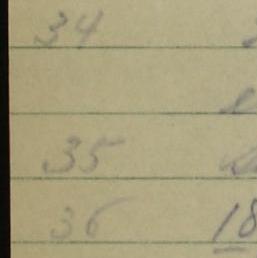 34
35
36 18